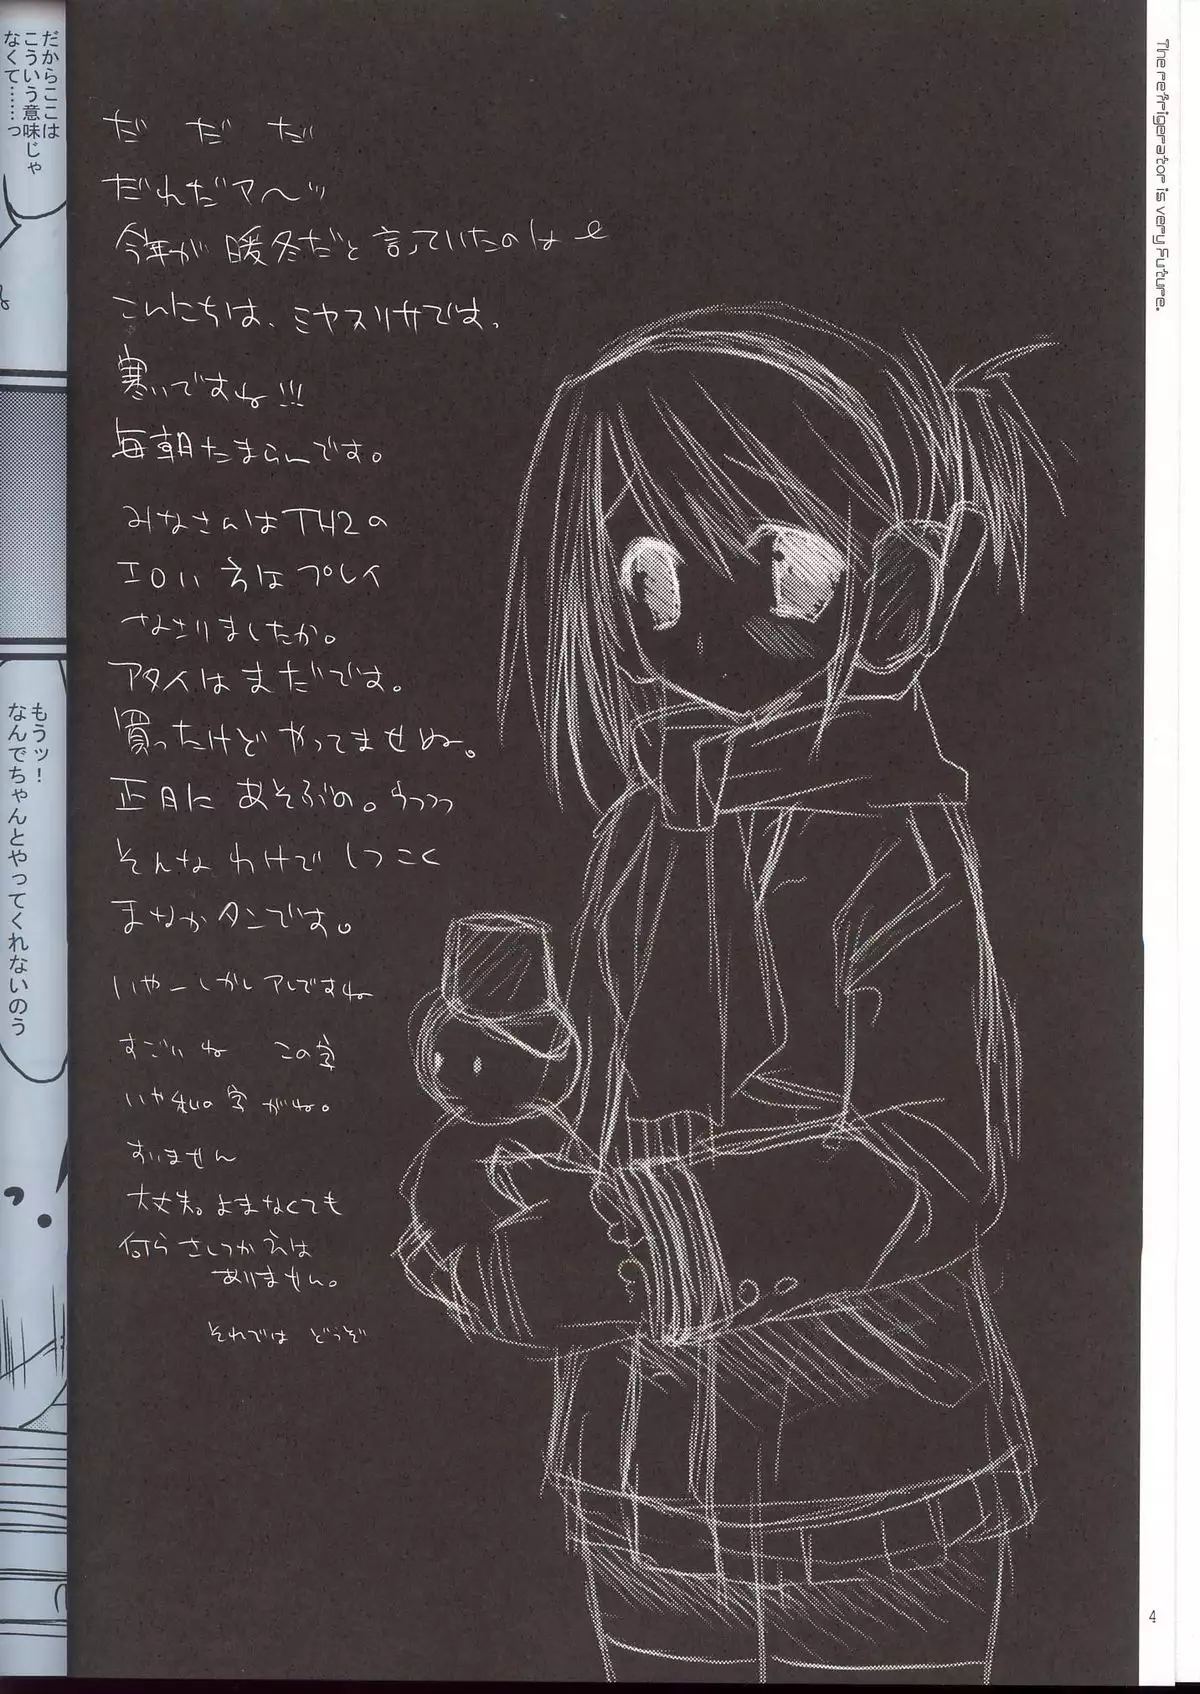 The refrigerator is very Future.
だ だ だ
だれだァ〜ッ
今年が暖冬だと言っていたのは
こんにちは、ミヤスリサです、
寒いですね!!!
毎朝たまらんです。
みなさんはTH2の
エロい方はプレイ
なさりましたか。
アタイはまだです。
買ったけどやってませぬ。
正月にあそぶの。うつつつ
そんなわけでしつこく
まなかタンです。
いやーしかしアレですね
すごいね この字
いや私の字がね。
すいません
大丈夫。よまなくても
何らさしつかえは
ありません。
それでは どうぞ
だからここは
こういう意味じゃ
なくて……っ
もうッ!
なんでちゃんとやってくれないのう
4